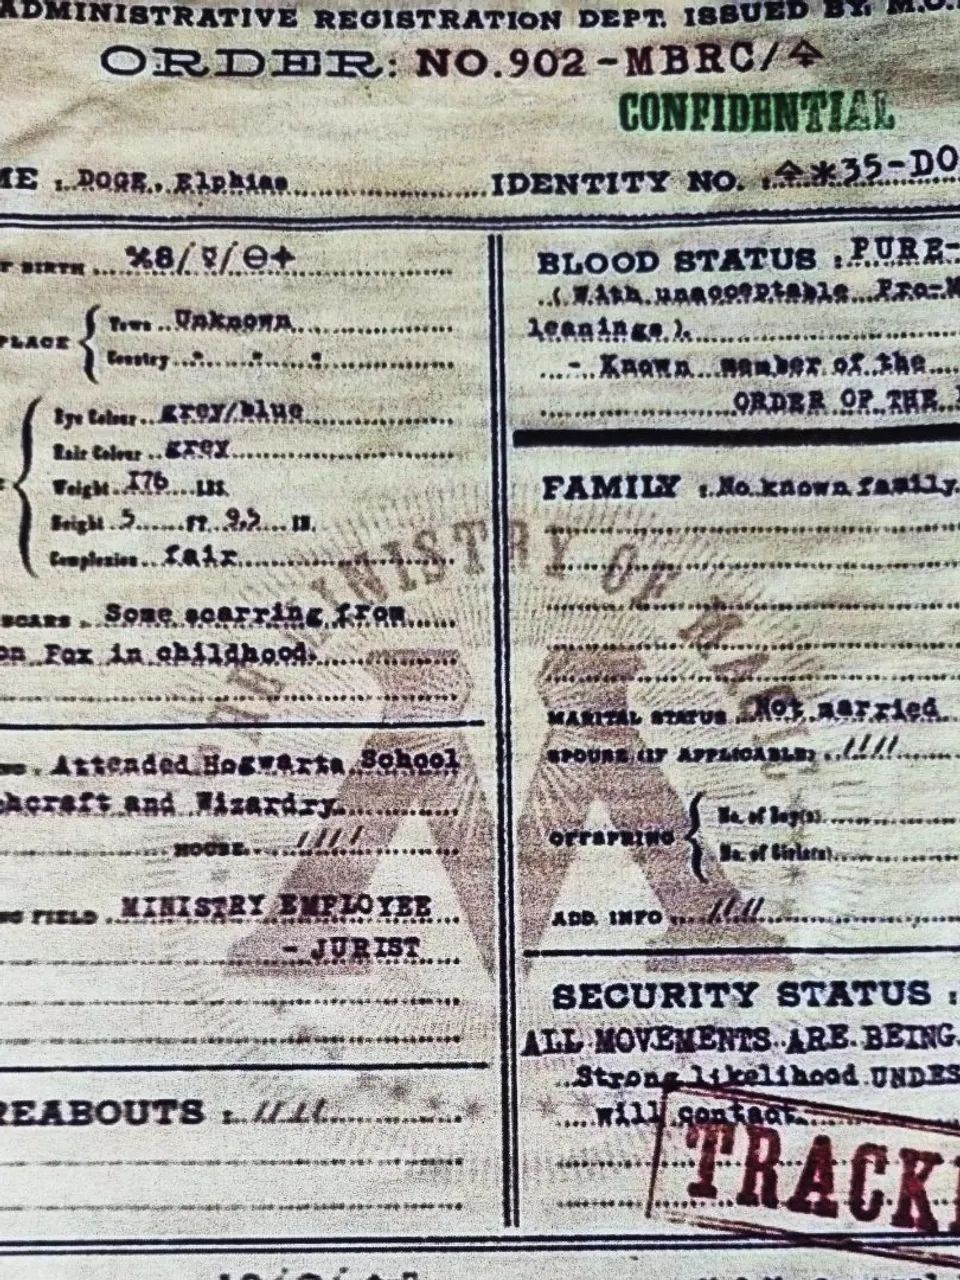 ADMINISTRATIVE REGISTRATION DEPT. ISSUED BY: M.O.
ORDER: NO.902-MBRC/
CONFIDENTIAL
ME : DOGE, Elphias
IDENTITY NO. : *35-DO
F BIRTH 8/☿/⊖✦
PLACE Town Unknown
Country " " "
Eye Colour grey/blue
Hair Colour grey
Weight 176 LBS.
Height 5 FT. 9,5 IN.
Complexion fair
SCARS Some scarring from
on Pox in childhood.
Attended Hogwarts School
hcraft and Wizardry
HOUSE ////
NG FIELD MINISTRY EMPLOYEE
- JURIST
REABOUTS : ////
BLOOD STATUS : PURE-
( With unacceptable Pro-M
leanings ).
- Known member of the
ORDER OF THE
FAMILY : No known family
MARITAL STATUS Not married
SPOUSE (IF APPLICABLE) ////
OFFSPRING No. of Boy(s)
No. of Girls(s)
ADD. INFO ////
SECURITY STATUS :
ALL MOVEMENTS ARE BEING
Strong likelihood UNDES
will contact
TRACK
THE MINISTRY OF MAGIC